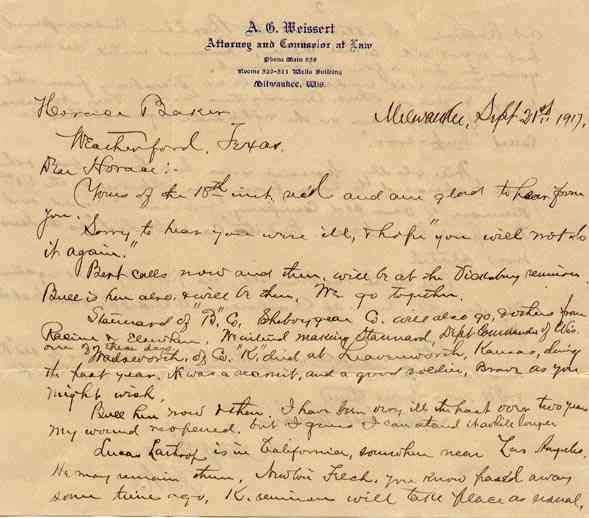 A. G. Weissert
Attorney and Counselor at Law
Phone Main 538
Rooms 520-521 Wells Building
Milwaukee, Wis.
Horace Baker
Milwaukee, Sept 21st 1917.
Weatherford, Texas.
Dear Horace:-
Yours of the 18th inst. rec'd and am glad to hear from
you.
Sorry to hear you were ill, & hope "you will not do
it again."
Bert calls now and then, will be at the Vicksburg reunion.
Buell is here also, & will be there. We go together.
Stannard of "B" Co, Sheboygan C. will also go, & others from
Racine & Elsewhere. making Stannard, Dept Commander of Wis.
one of these days
Wadsworth, of Co. "K" died at Leavenworth, Kansas, during
the past year. He was a recruit, and a good soldier, Brave as you
might wish.
Buell here now & then. I have been very ill the past over two years
My wound reopened, but I guess I can stand it awhile longer
Lucas Lathrop is in California, somewhere near Los Angeles.
He may remain there. Newton Felch, you know pass'd away
some time ago, K. reunion will take place as usual,